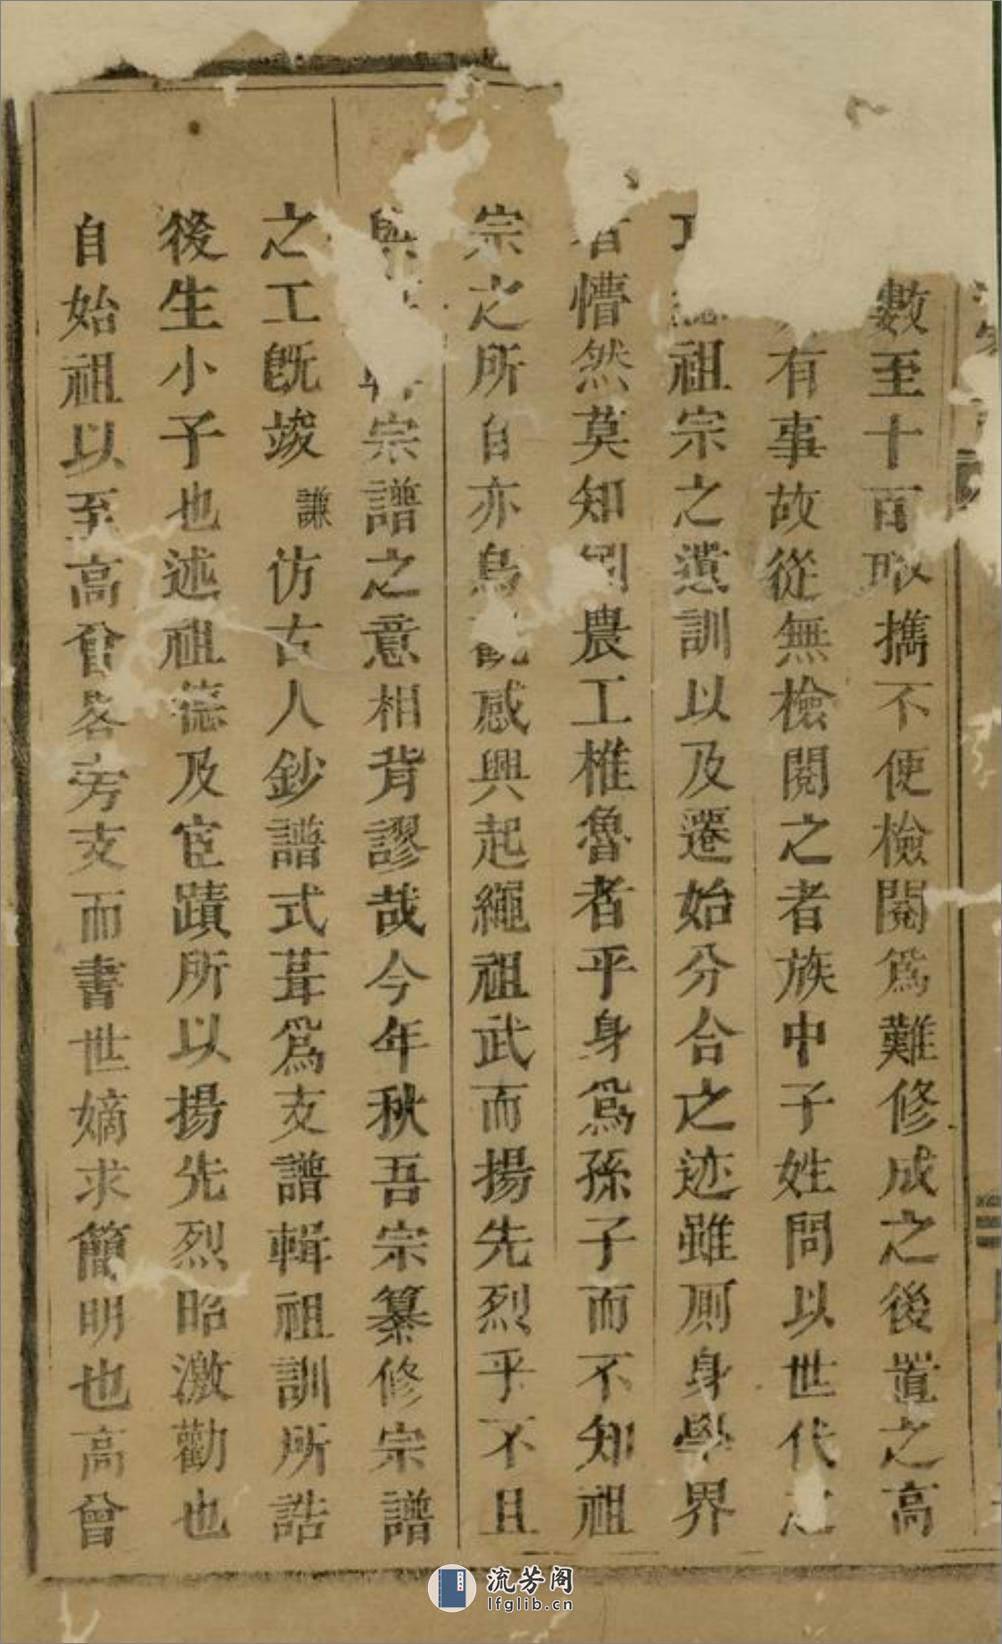 數至十百取攜不便檢閱爲難修成之後置之高
有事故從無檢閱之者族中子姓問以世代之
祖宗之遺訓以及遷始分合之迹雖厠身學界
者懵然莫知農工椎魯者乎身爲孫子而不知祖
宗之所自亦烏感興起繩祖武而揚先烈乎不且
與宗譜之意相背謬哉今年秋吾宗纂修宗譜
之工旣竣謙仿古人鈔譜式葺爲支譜輯祖訓所誥
後生小子也述祖德及宦蹟所以揚先烈昭激勸也
自始祖以至高曾畧旁支而書世嫡求簡明也高曾
流芳阁
lfglib.cn